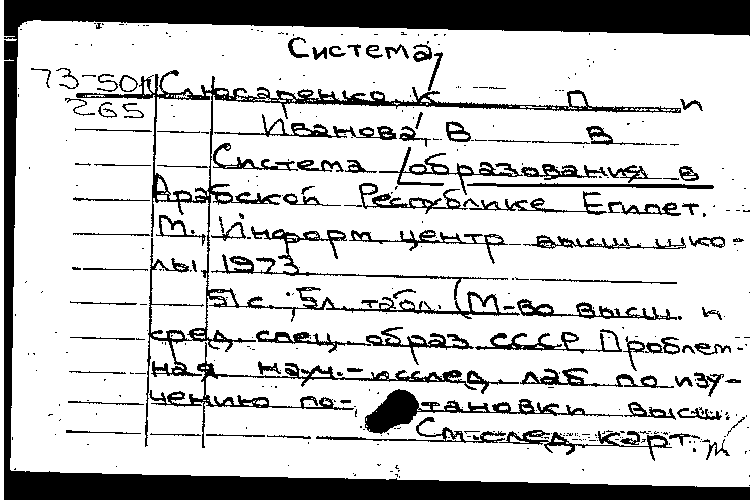 Система
73-50III Слюсаренко, К П и
265
Иванова, В В
Система образования в
Арабской Республике Египет.
М., Информ. центр высш. шко-
лы, 1973.
51 с.; 5л. табл. (М-во высш. и
сред. спец. образ. СССР. Проблем-
ная науч.-исслед. лаб. по изу-
чению по- тановки высш.
См.след. карт.